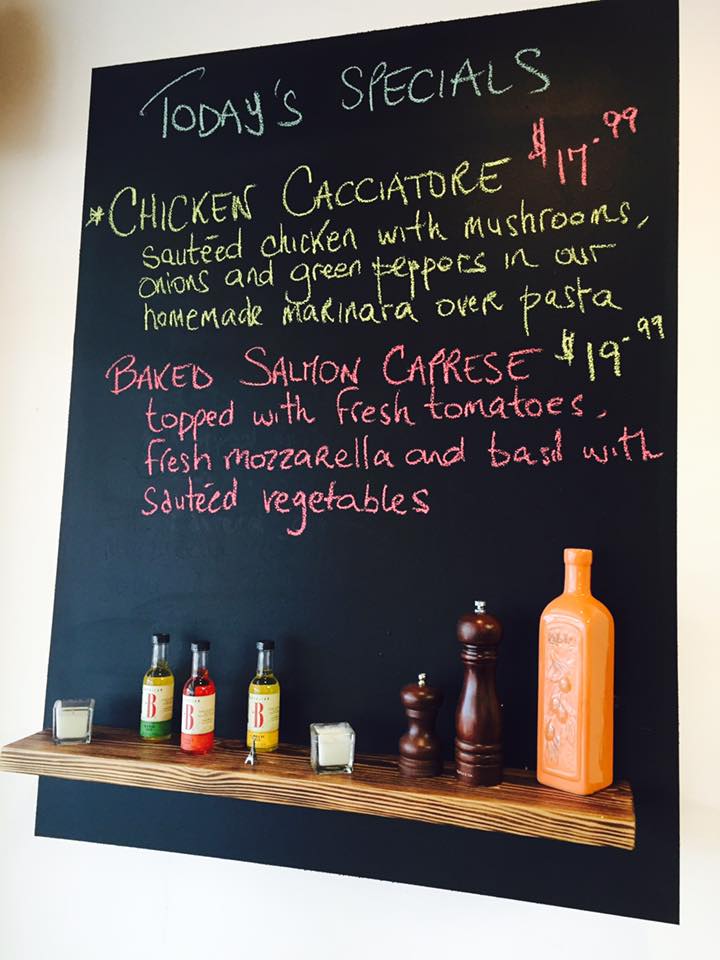 TODAY'S SPECIALS
*CHICKEN CACCIATORE $17.99
sautéed chicken with mushrooms,
onions and green peppers in our
homemade marinara over pasta
BAKED SALMON CAPRESE $19.99
topped with fresh tomatoes,
fresh mozzarella and basil with
sautéed vegetables
B
B
B